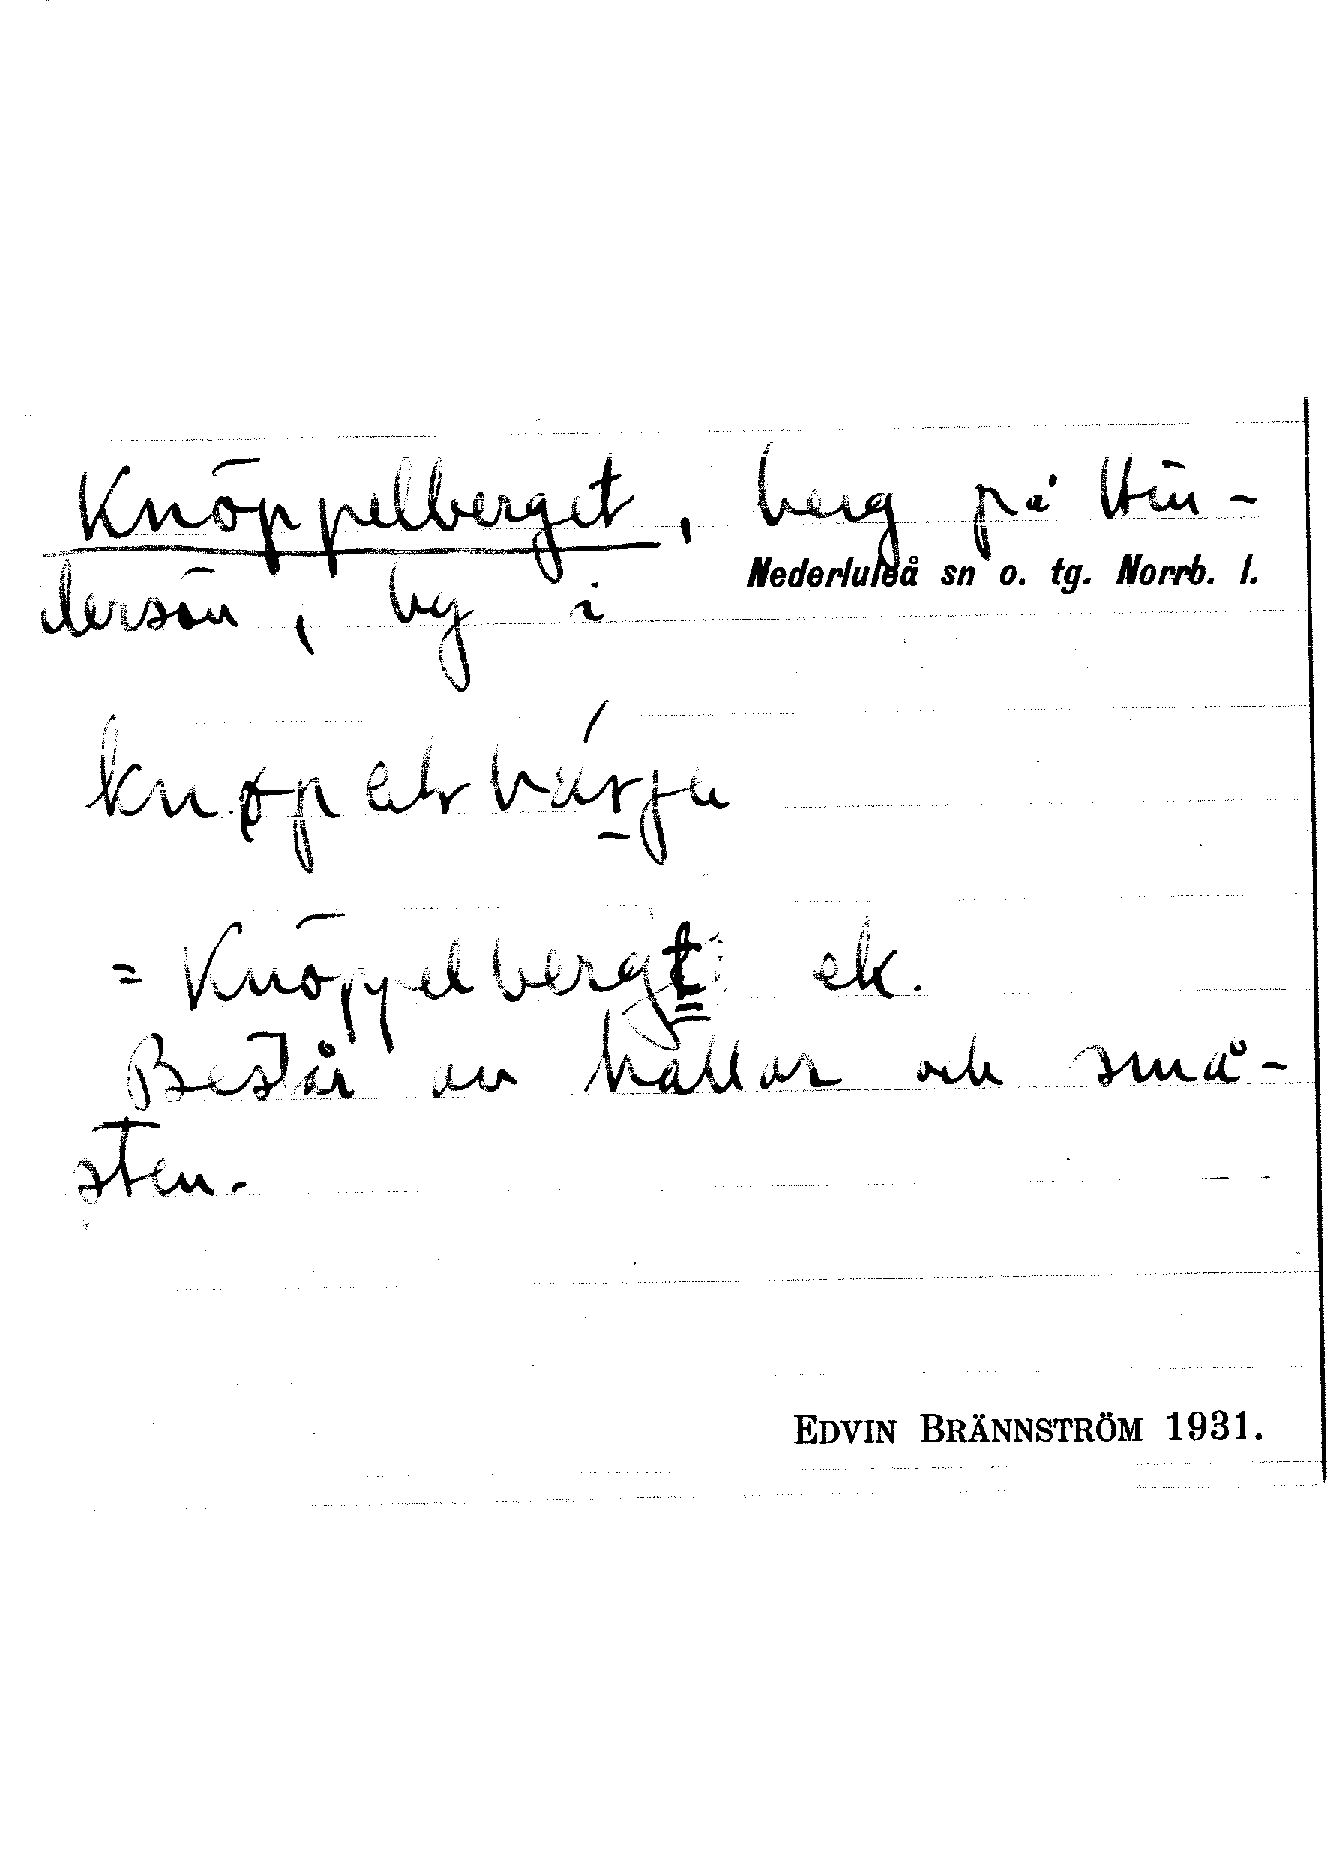 Knöppelberget, berg på Hin-
Nederluleå sn o. tg. Norrb. l.
dersön, by i
= Knöppelbergt ek.
Består av hällar och små-
sten.
EDVIN BRÄNNSTRÖM 1931.